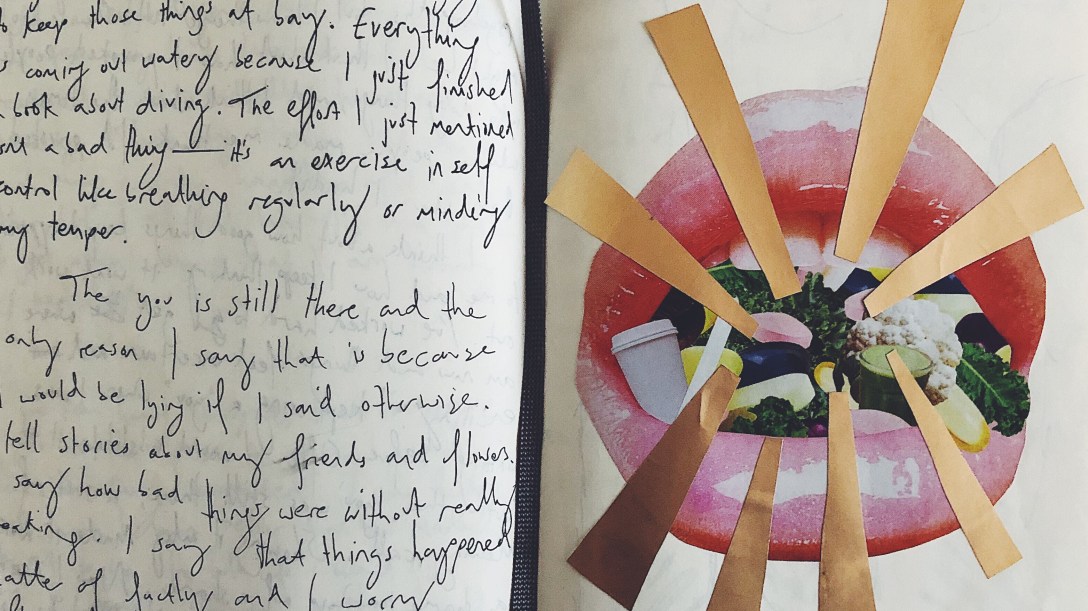 to keep those things at bay. Everything
s coming out watery because I just finished
a book about diving. The effort I just mentioned
isn't a bad thing — it's an exercise in self
control like breathing regularly or minding
my temper.
The you is still there and the
only reason I say that is because
I would be lying if I said otherwise.
tell stories about my friends and flowers.
say how bad things were without really
eaking. I say that things happened
atter of factly and I worry